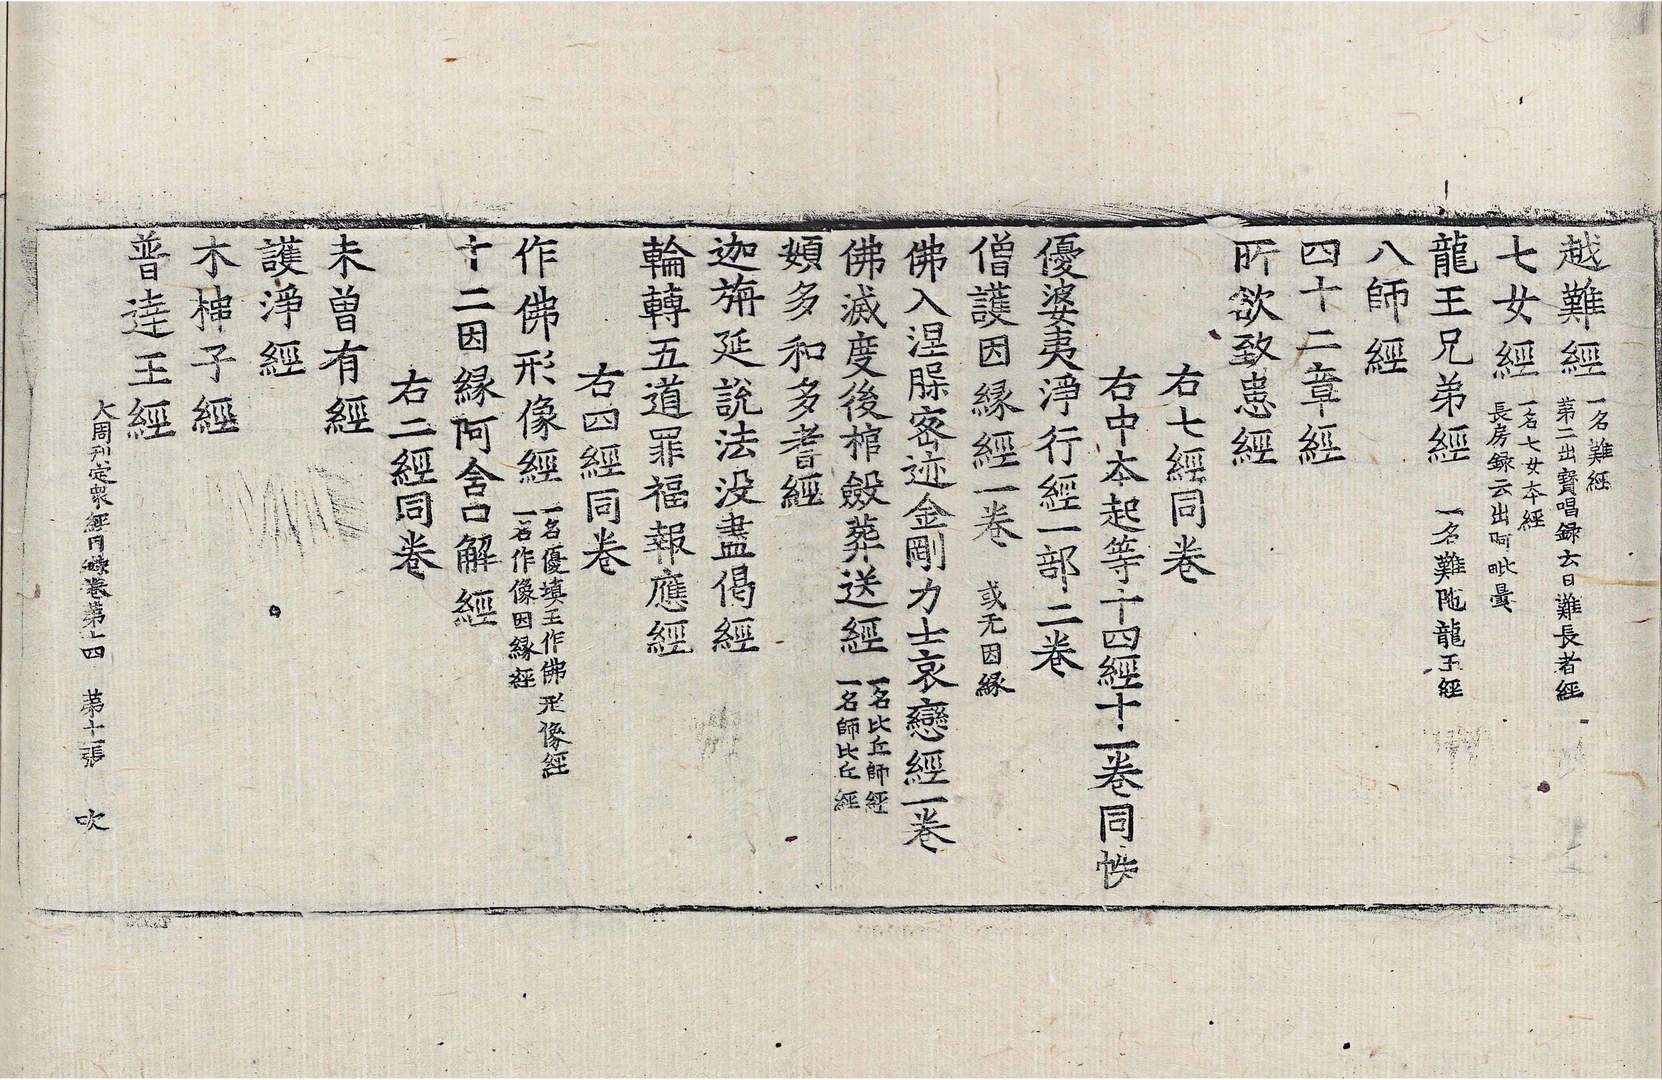 越難經 一名難經 第二出寶唱録云日難長者經
七女經 一名七女本經 長房録云出阿毗曇
龍王兄弟經 一名難陁龍王經
八師經
四十二章經
所欲致患經
右七經同卷
右中本起等十四經十一卷同帙
優婆夷淨行經一部二卷
僧護因縁經一卷 或无因縁
佛入涅槃密迹金剛力士哀戀經一卷
佛滅度後棺斂葬送經 一名比丘師經 一名師比丘經
頞多和多耆經
迦旃延說法没盡偈經
輪轉五道罪福報應經
右四經同卷
作佛形像經 一名優填王作佛形像經 一名作像因縁經
十二因縁阿含口解經
右二經同卷
未曽有經
護淨經
木槵子經
普達王經
大周刊定衆經目録卷第十四 第十一張 吹